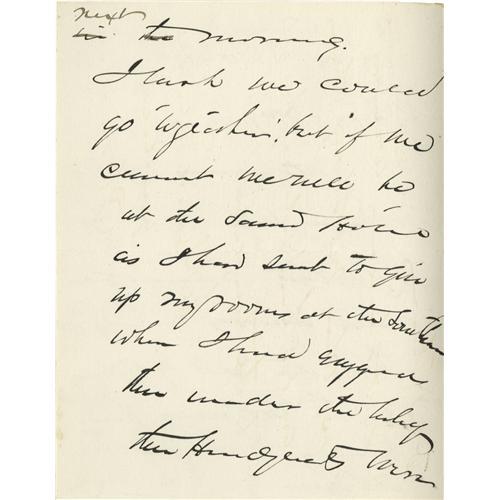 next
in the morning.
I wish we could
go together, but if we
cannot we will be
at the same House
as I had sent to give
up my rooms at the
when I had engaged
them under the belief
the were